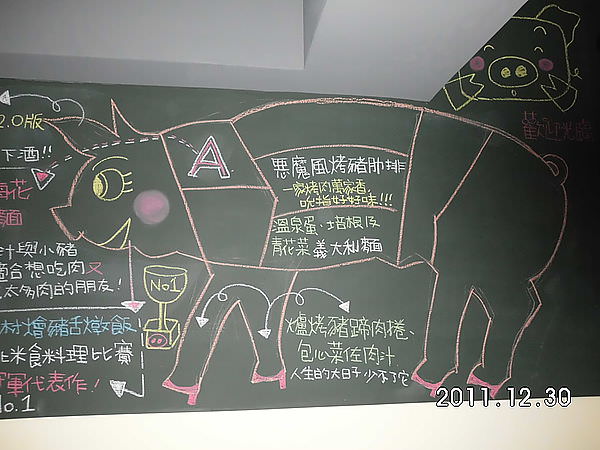 2.0版
下酒!!
梅花
麵
汁與小豬
適合想吃肉又
太多肉的朋友!
村燴豬舌燉飯
北米食料理比賽
冠軍代表作!
No.1
A
No1
惡魔風烤豬肋排
一家烤肉萬家香,
吮指好好味!!!
溫泉蛋、培根及
青花菜義大利麵
爐烤豬蹄肉捲、
包心菜佐肉汁
人生的大日子少不了它
歡迎光臨
2011.12.30